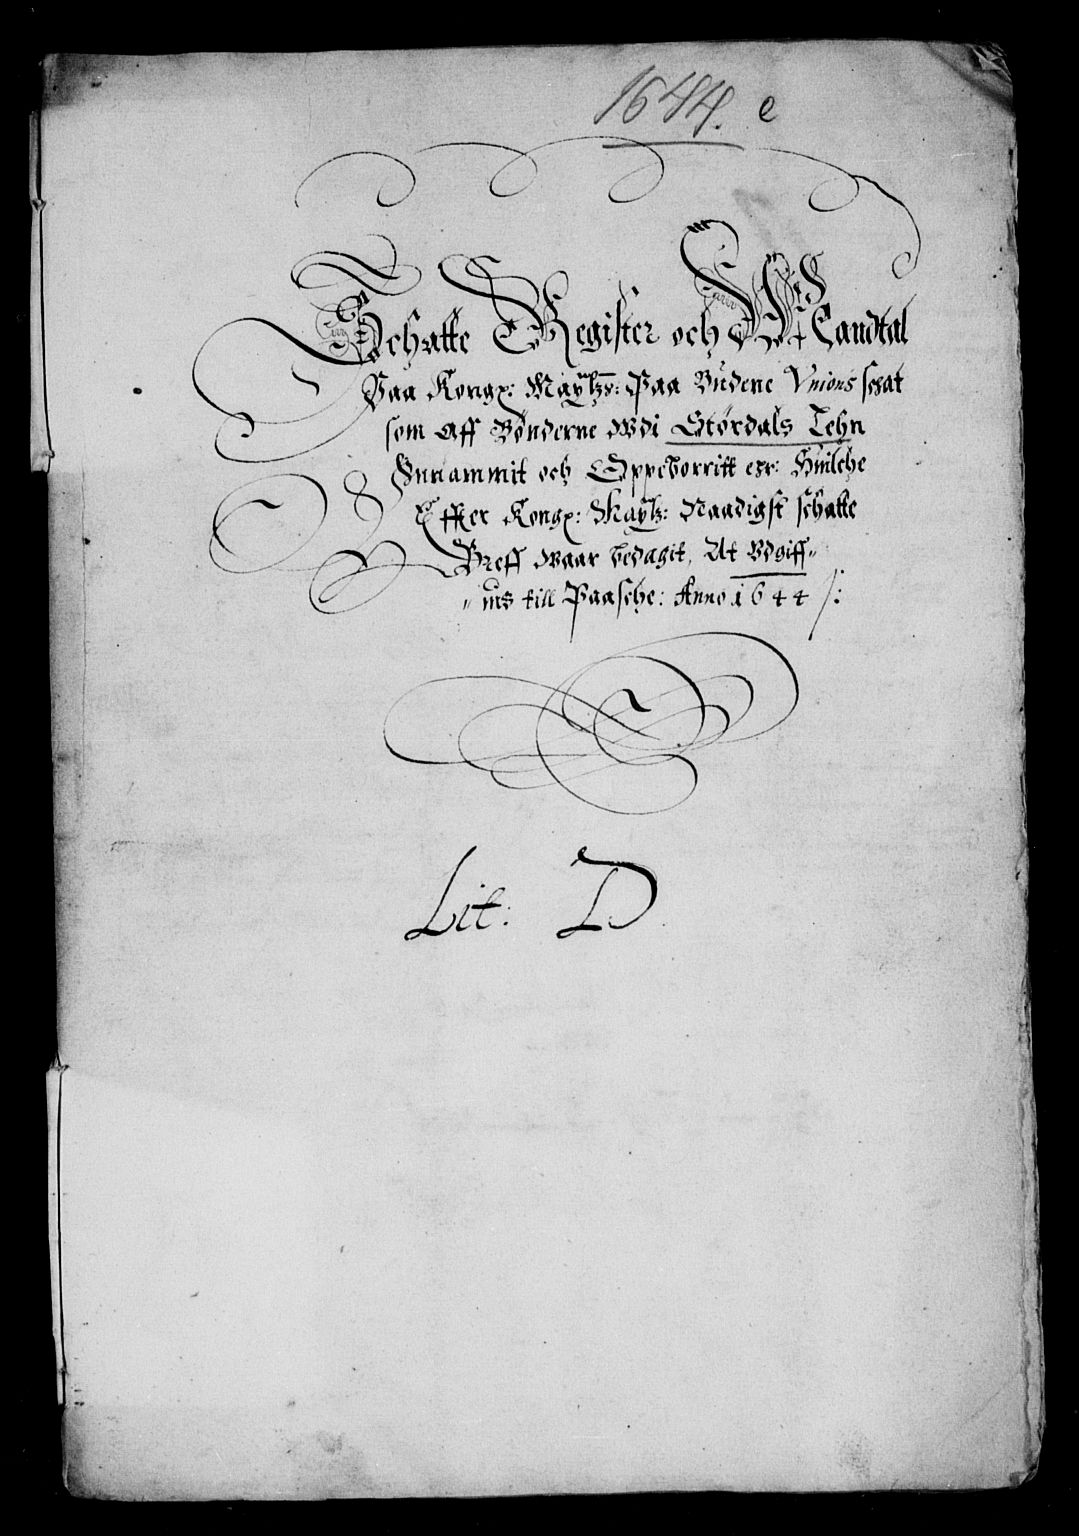 1644. e
Schatte Register och Mandtal
Paa Kongx: Maytz: Paa Budene Vnions schat
som Aff Bønderne wdi Størdals Lehn
Innammit och Oppeborritt er: Huilche
Effter Kongx: Maytz: Naadigst schatte
Breff waar bedagit, At Vdgiff„
„uis till Paasche: Anno 1644 /:
Lit: D